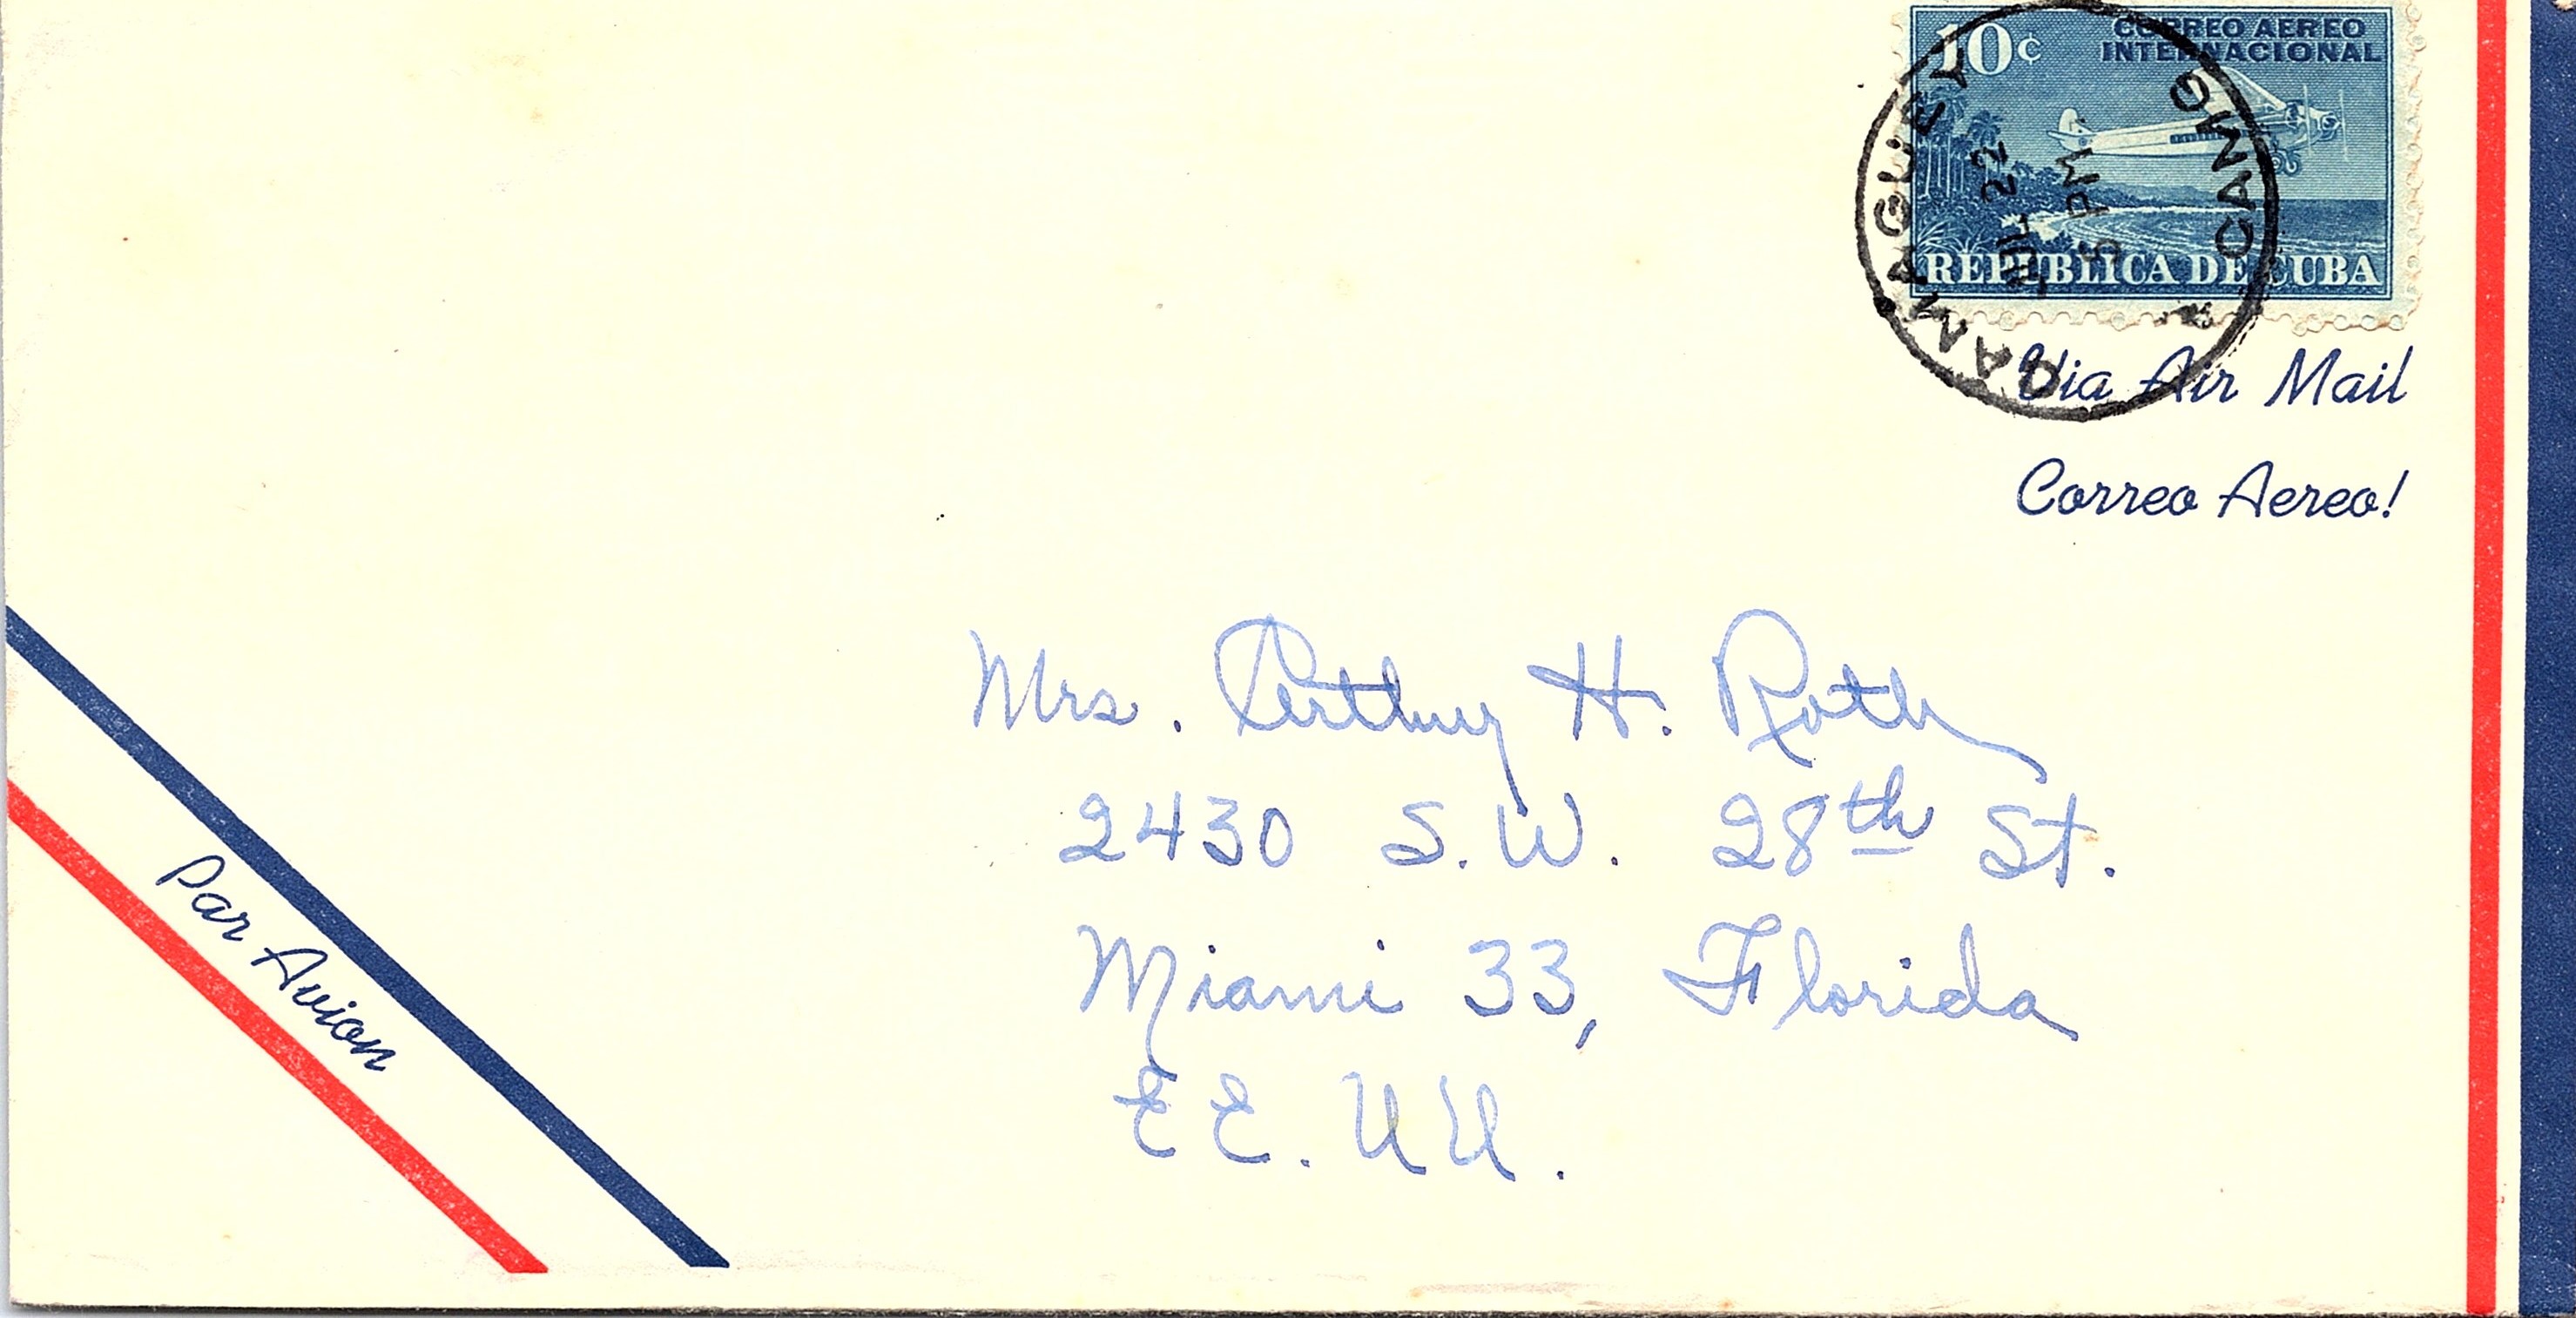 10¢ CORREO AEREO
INTERNACIONAL
REPUBLICA DE CUBA
CAMAGUEY
JUL 22
5 PM
CAMG
Via Air Mail
Correo Aereo!
Mrs. Arthur H. Roth
2430 S.W. 28th St.
Miami 33, Florida
EE. UU.
Par Avion